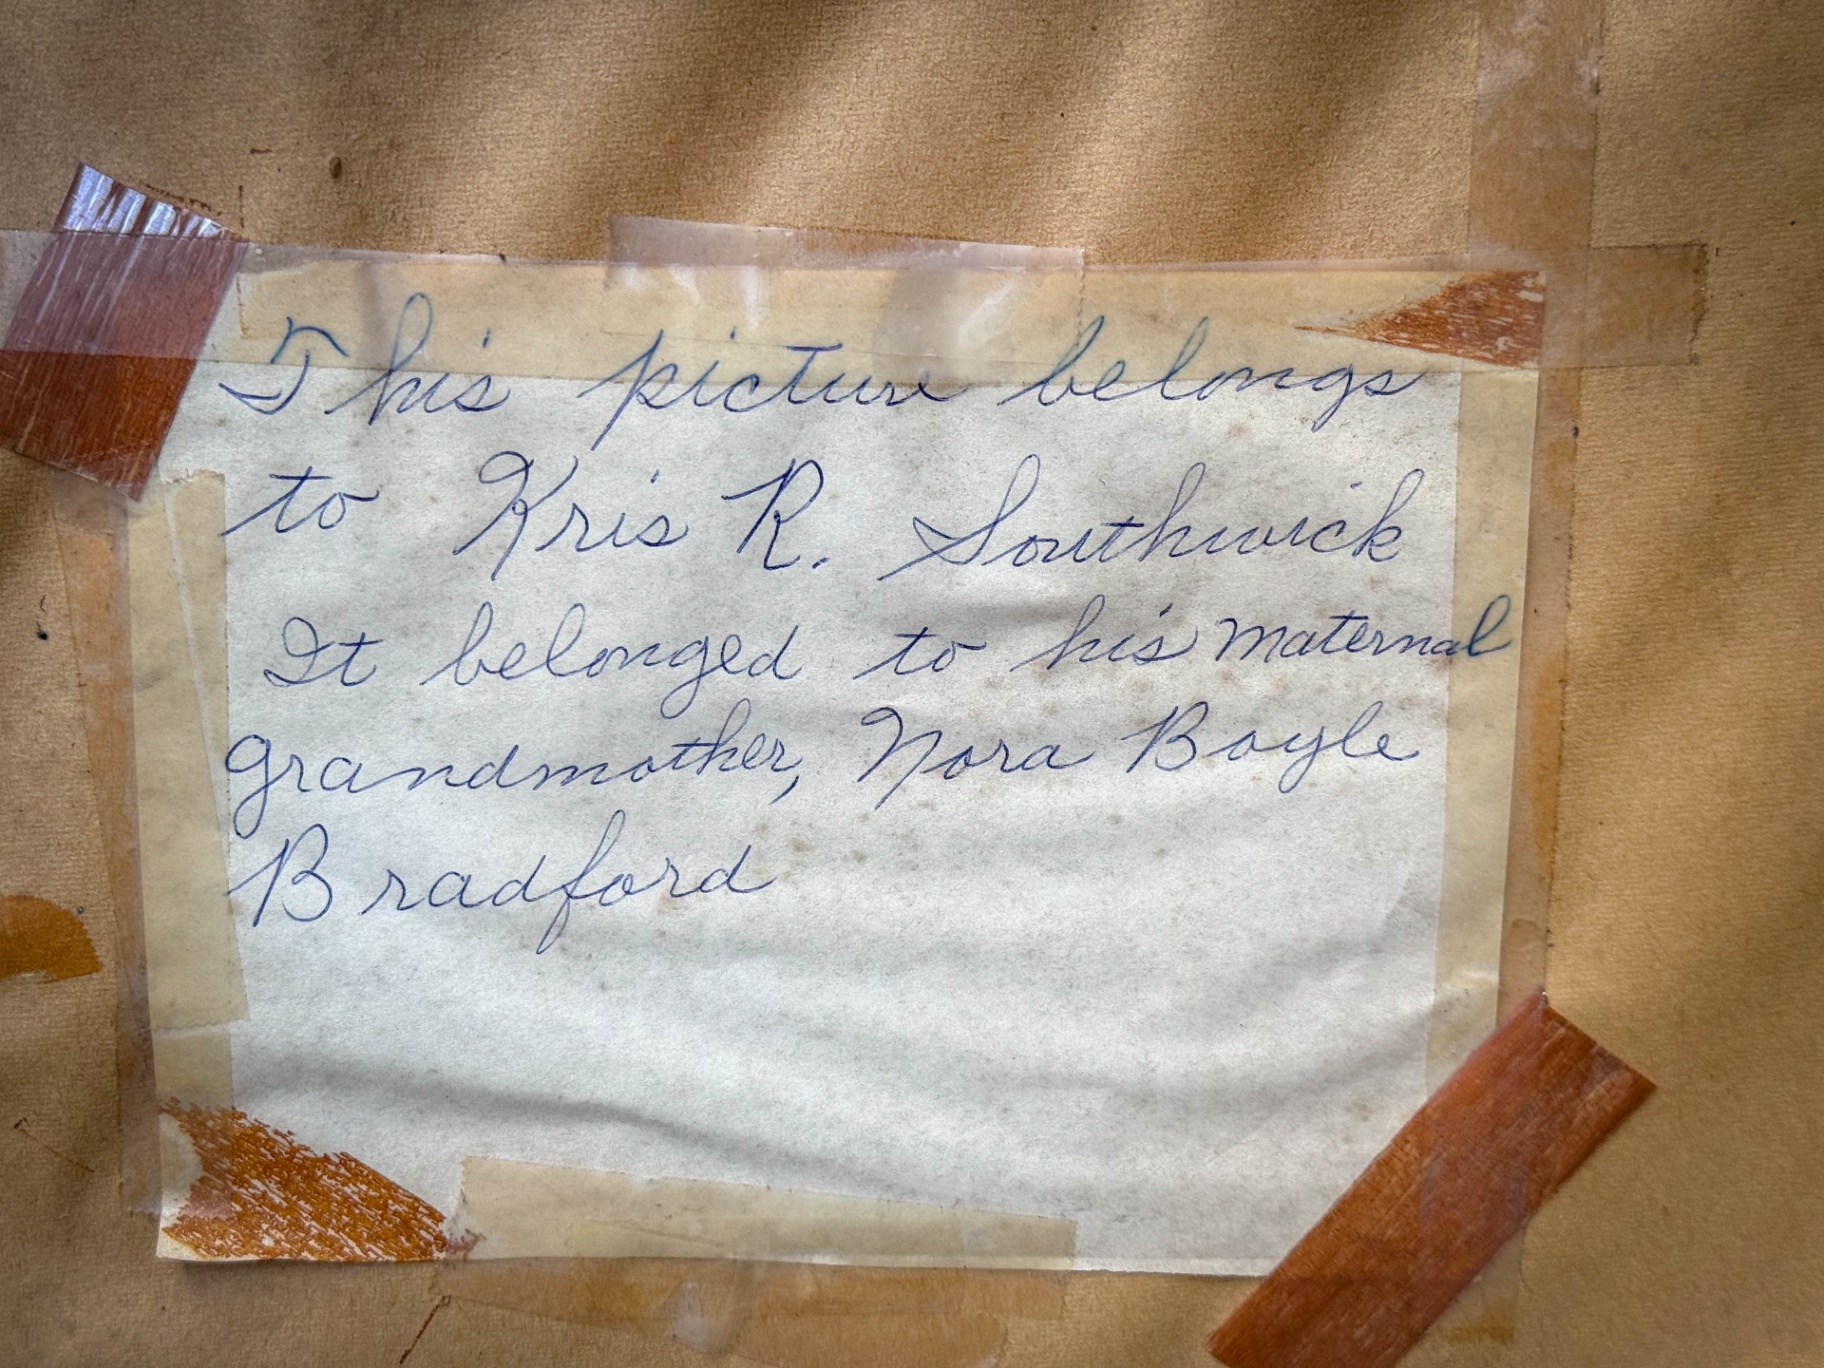 This picture belongs
to Kris R. Southwick
It belonged to his maternal
grandmother, Nora Boyle
Bradford